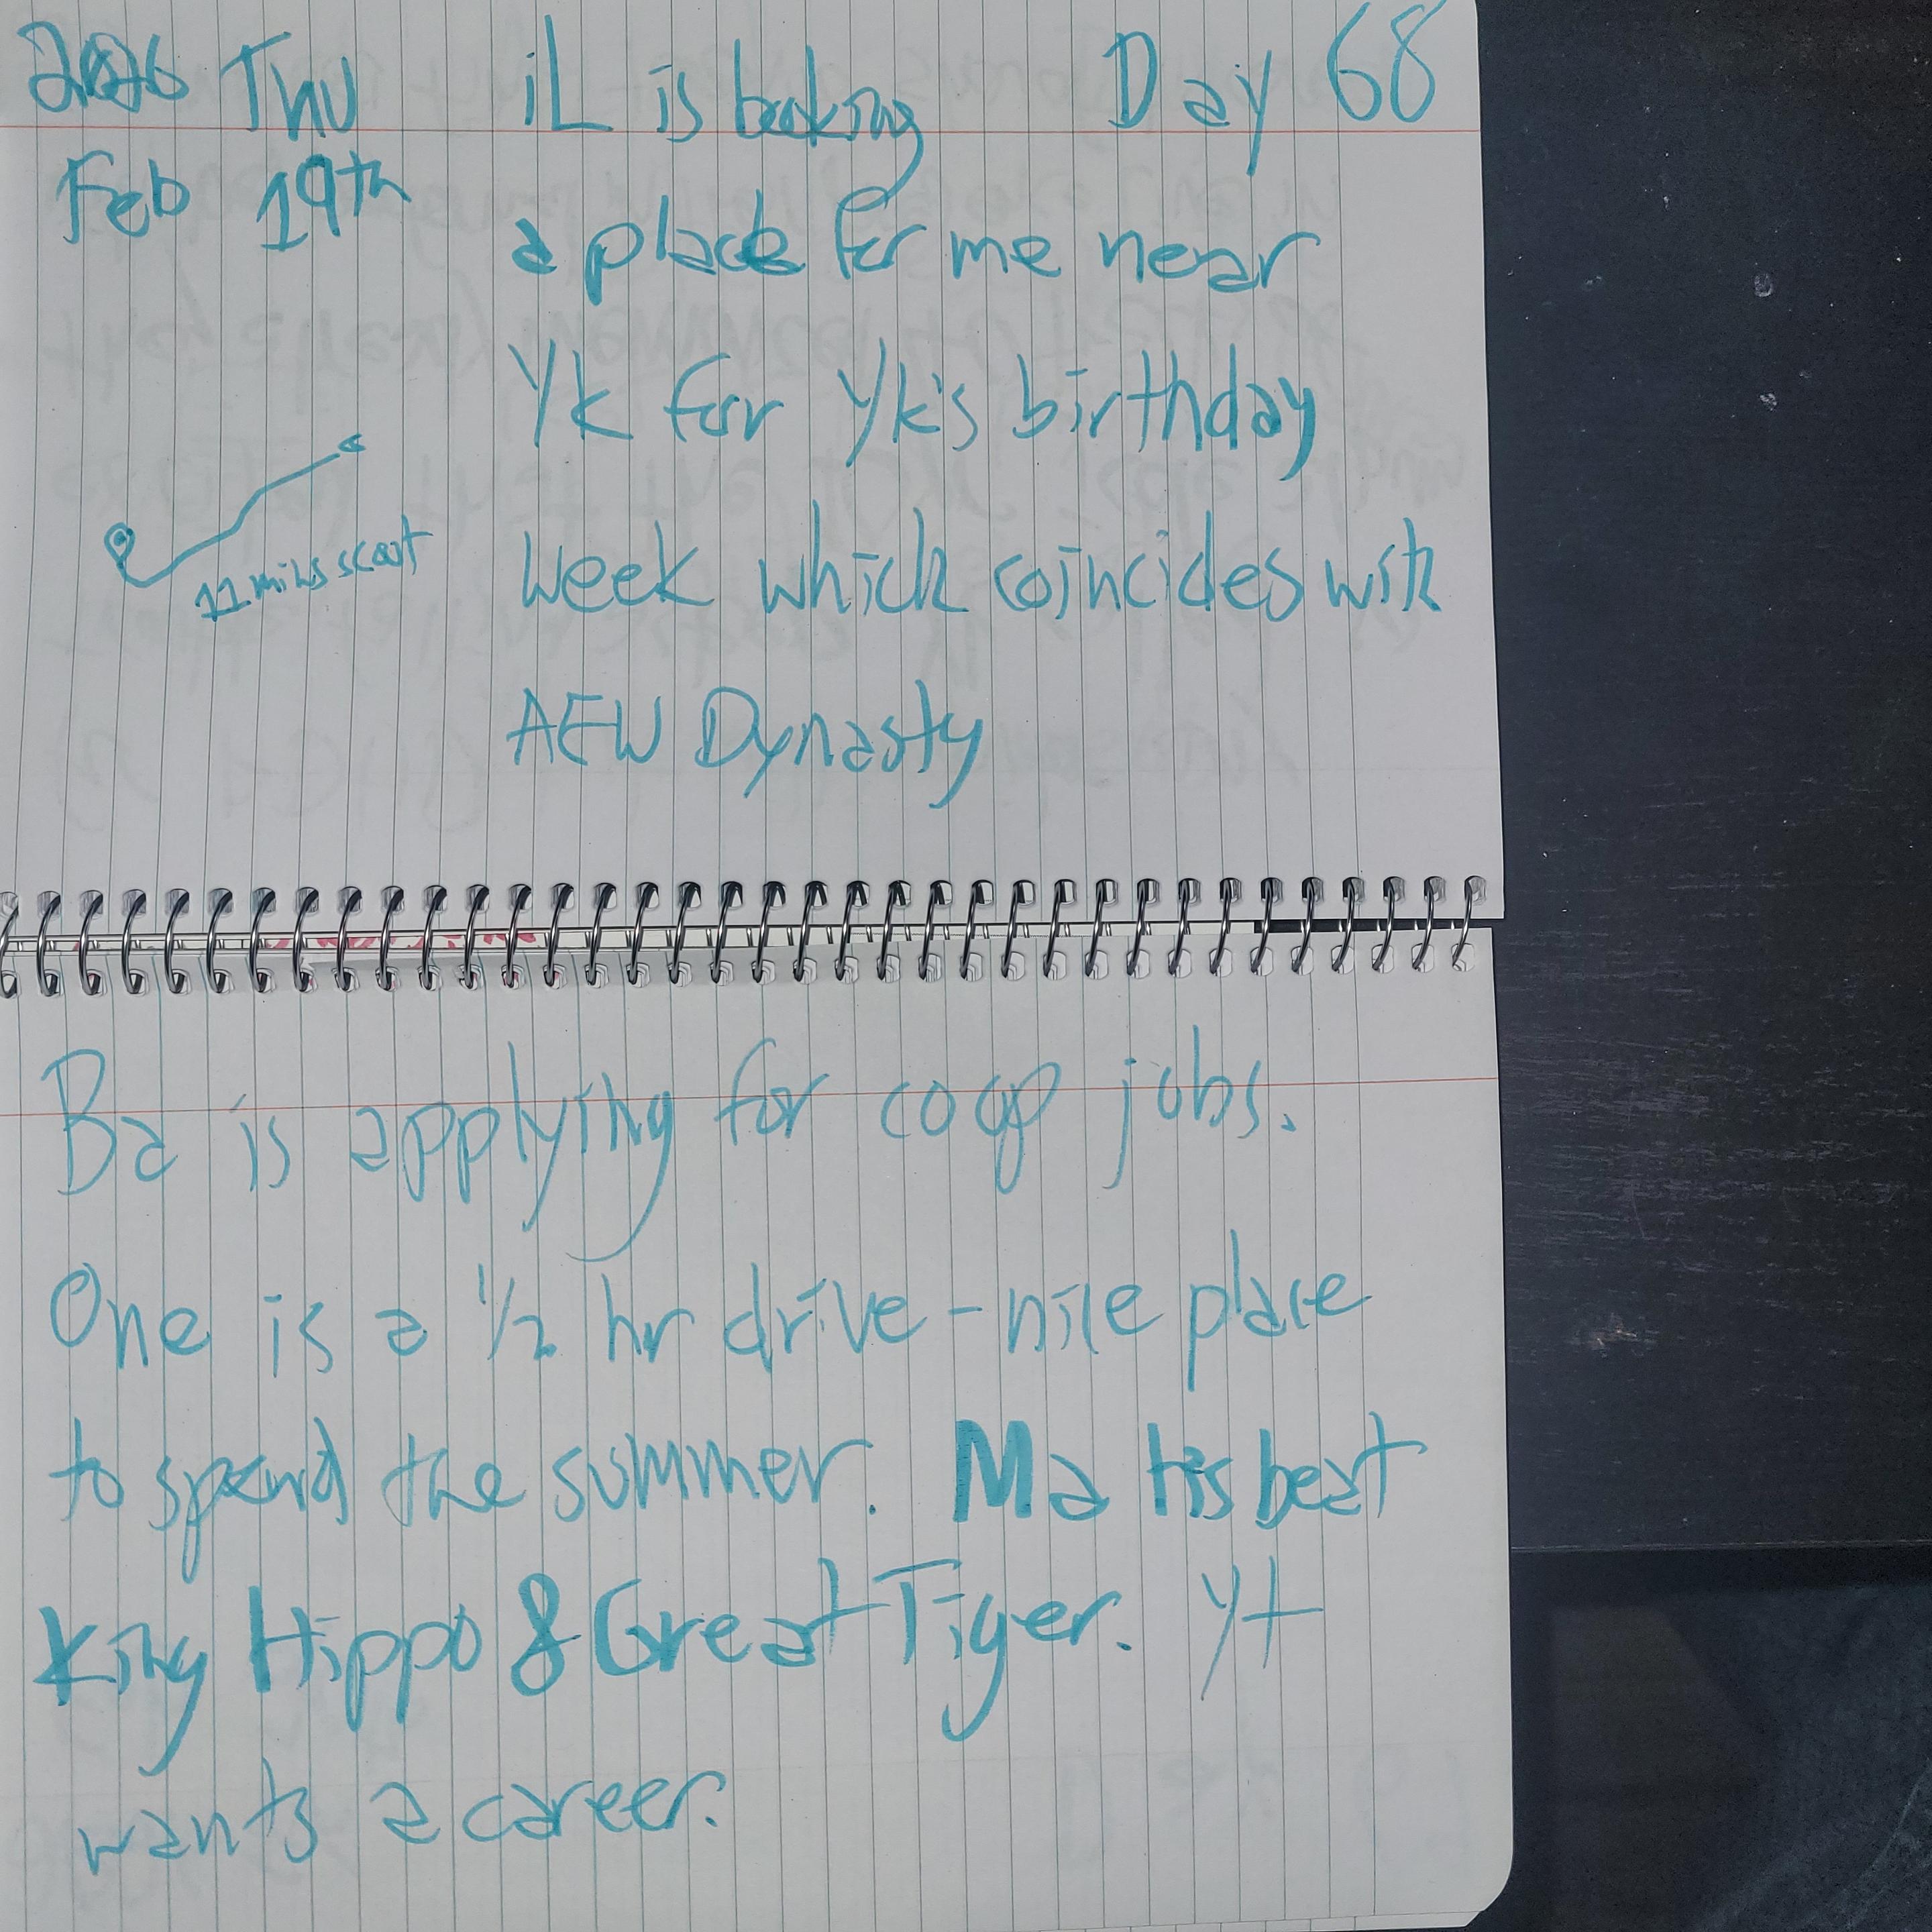 2026 Thu iL is booking Day 68
Feb 19th a place for me near
Yk for Yk's birthday
week which coincides with
11 mins scoot
AEW Dynasty
Ba is applying for coop jobs.
One is a 1/2 hr drive - nice place
to spend the summer. Ma has beat
King Hippo & Great Tiger. Yt
wants a career.